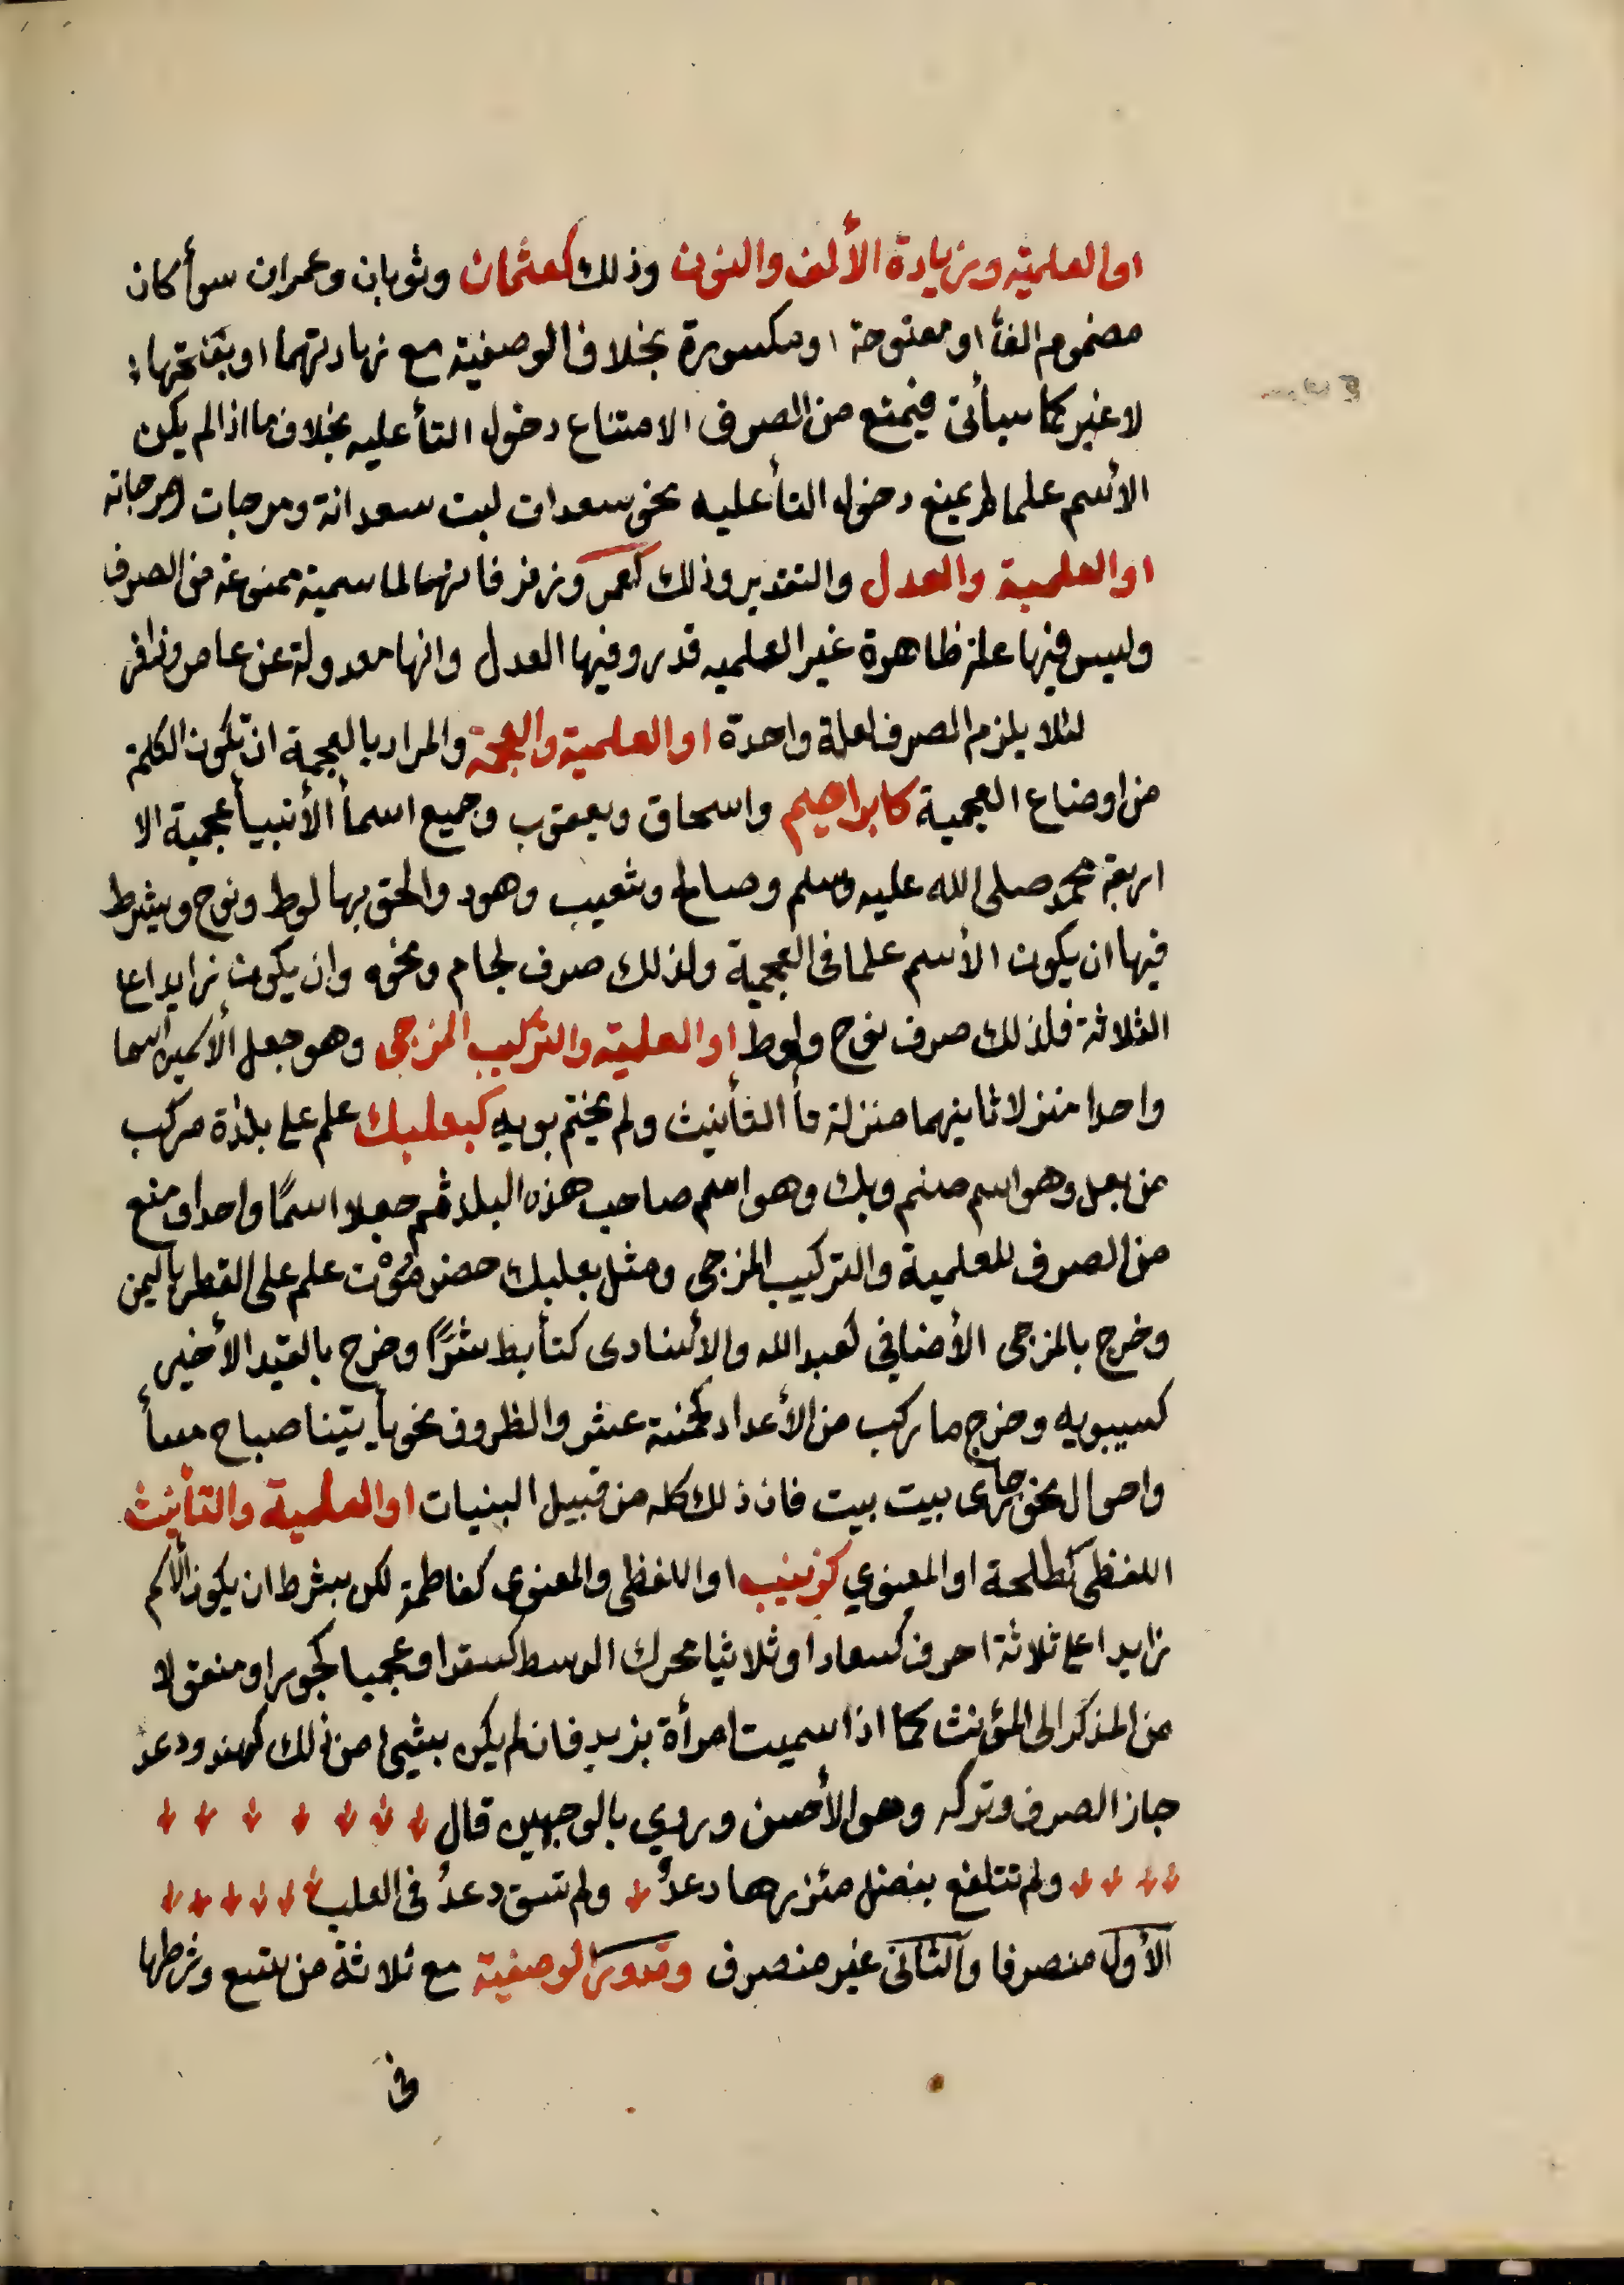 او العلمية وزيادة الألف والنون وذلك كعثمان وثوبان وعمران سوأ كان
مضموم الفأ او مفتوحة او مكسورة بخلاف الوصفية مع زيادتهما او بفتحها
لا غير كما سيأتى فيمتع من الصرف الامتناع دخول التأ عليه بخلاف ما اذا لم يكن
الأسم علما لم يمنع دخول التأ عليه نحو سعدات لبت سعدانة ومرجات امرجانه
او العلمية والعدل والتقدير وذلك كعمر وزفر فانهما لما سمية ممنوعة من الصرف
وليس فيها علة ظاهرة غير العلميه قدر وفيها العدل وانها معدولة عن عامر وزافر
لئلا يلزم الصرف لعلة واحدة او العلمية والعجمة والمراد بالعجمة ان تكون الكلمة
من اوضاع العجمية كابراهيم واسحاق ويعقوب وجميع اسمأ الأنبيأ عجمية الا
اربعة محمد صلى الله عليه وسلم وصالح وشعيب وهود والحق بها لوط ونوح ويشرط
فيها ان يكون الأسم علما فى العجمية ولذلك صرف لجام ونحوه وان يكون زايدا على
الثلاثة فلذلك صرف نوح ولوط او العلمية والتركيب المزجى وهو جعل الأسمين اسما
واحدا منزلا ثانيهما منزلة تأ التأنيث ولم يختم بويه كبعلبك علم على بلدة مركب
من بعل وهو اسم صنم وبك وهو اسم صاحب هذه البلدة ثم جعلا اسمًا واحدا ومنع
من الصرف للعلمية والتركيب المزجى ومثل بعلبك حضرموت علم على القطر باليمن
وخرج بالمزجى الأضافي كعبد الله والأسنادى كتأبط شرًا وخرج بالقيد الأخير
كسيبويه وخرج ما ركب من الأعداد كخمسة عشر والظروف نحو يأتينا صباح مسأ
واحوال نحو جارى بيت بيت فان ذلك كله من قبيل البنيات او العلمية والتأنيث
اللفظى كطلحة او المعنوي كزينب او اللفظى والمعنوى كفاطمة لكن بشرط ان يكون الأسم
زايدا على ثلاثة احرف كسعاد او ثلاثيا محرك الوسط كسقر او عجميا كجور او منقولا
من المذكر الى المؤنث كما اذا سميت امرأة بزيد فان لم يكن بشيئ من ذلك كهند ودعد
جاز الصرف وتركه وهو الأحسن وروي بالوجهين قال
ولم تتلفع بفضل مئزرها دعدٌ ولم تسق دعدُ فى العلب
الأول منصرفا والثانى غير منصرف وتدور الوصفية مع ثلاثة من تسع وشرطها
فى